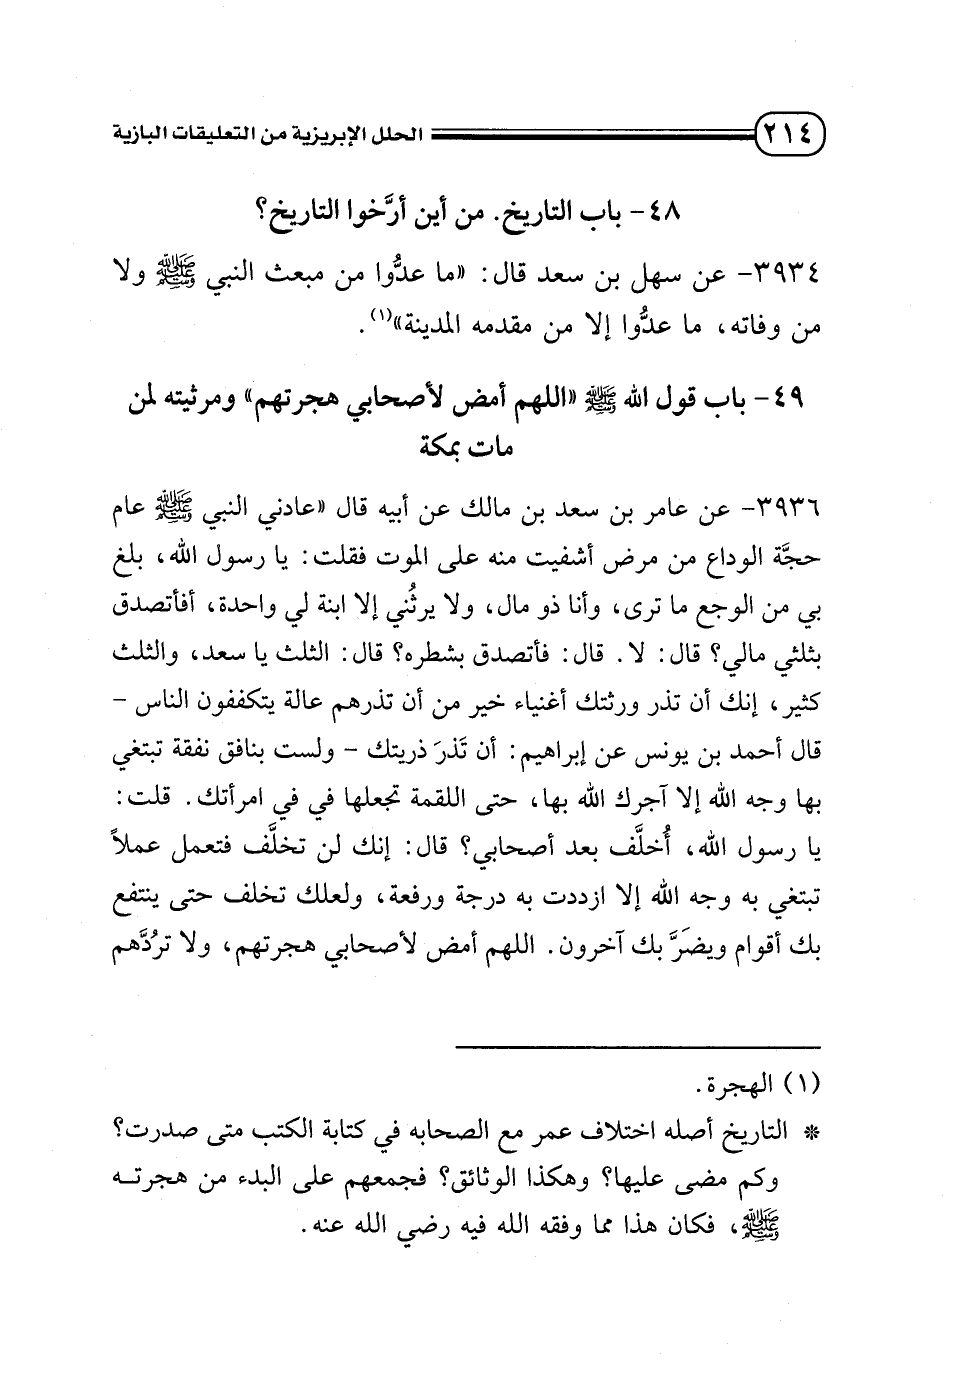 ٢١٤ الحلل الإبريزية من التعليقات البازية
٤٨- باب التاريخ. من أين أرَّخوا التاريخ؟
٣٩٣٤- عن سهل بن سعد قال: «ما عدُّوا من مبعث النبي ﷺ ولا
من وفاته، ما عدُّوا إلا من مقدمه المدينة»(١).
٤٩- باب قول الله ﷺ «اللهم أمض لأصحابي هجرتهم» ومرثيته لمن
مات بمكة
٣٩٣٦- عن عامر بن سعد بن مالك عن أبيه قال «عادني النبي ﷺ عام
حجَّة الوداع من مرض أشفيت منه على الموت فقلت: يا رسول الله، بلغ
بي من الوجع ما ترى، وأنا ذو مال، ولا يرثُني إلا ابنة لي واحدة، أفأتصدق
بثلثي مالي؟ قال: لا. قال: فأتصدق بشطره؟ قال: الثلث يا سعد، والثلث
كثير، إنك أن تذر ورثتك أغنياء خير من أن تذرهم عالة يتكففون الناس -
قال أحمد بن يونس عن إبراهيم: أن تَذرَ ذريتك - ولست بنافق نفقة تبتغي
بها وجه الله إلا آجرك الله بها، حتى اللقمة تجعلها في في امرأتك. قلت:
يا رسول الله، أُخلَّف بعد أصحابي؟ قال: إنك لن تخلَّف فتعمل عملاً
تبتغي به وجه الله إلا ازددت به درجة ورفعة، ولعلك تخلف حتى ينتفع
بك أقوام ويضرَّ بك آخرون. اللهم أمض لأصحابي هجرتهم، ولا تردَّهم
(١) الهجرة.
* التاريخ أصله اختلاف عمر مع الصحابه في كتابة الكتب متى صدرت؟
وكم مضى عليها؟ وهكذا الوثائق؟ فجمعهم على البدء من هجرته
ﷺ، فكان هذا مما وفقه الله فيه رضي الله عنه.